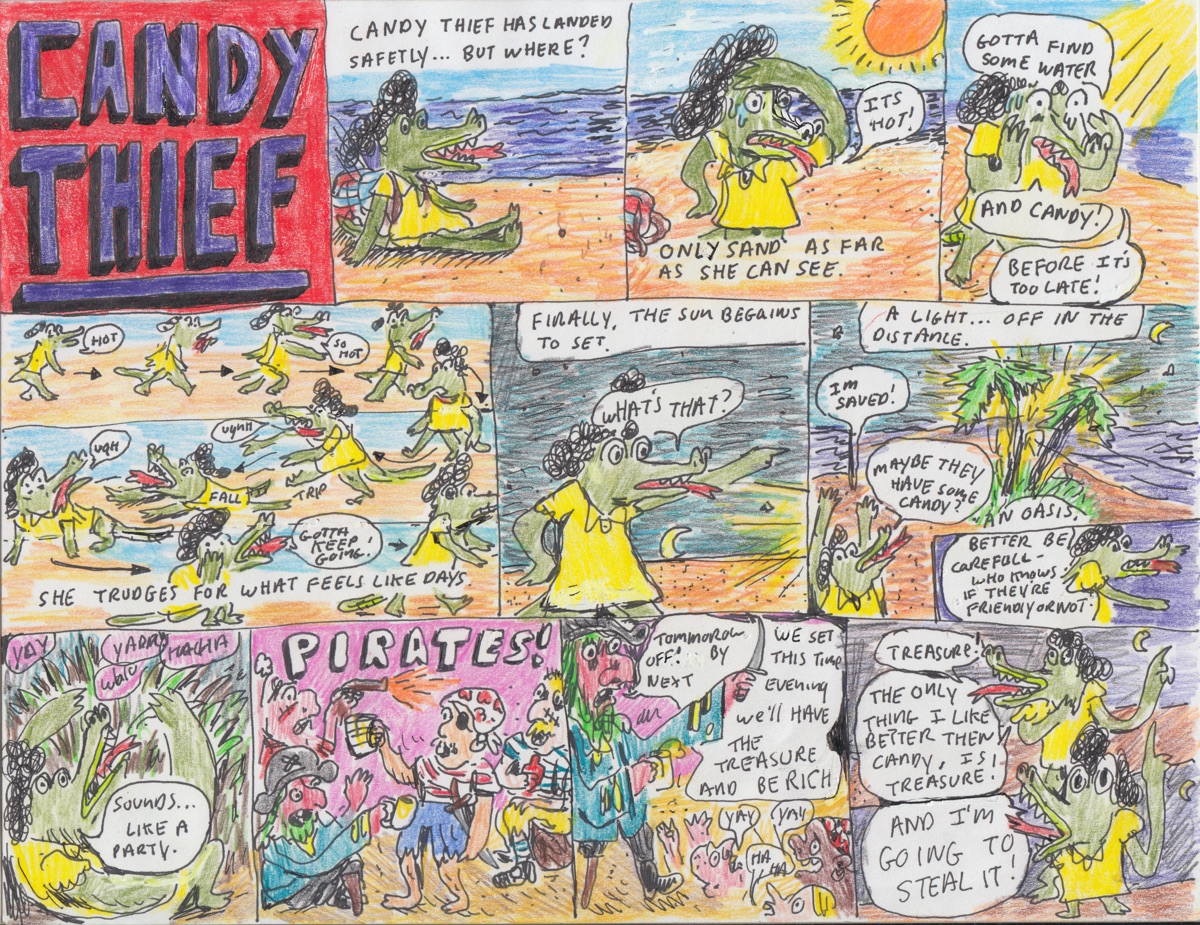 CANDY
THIEF
CANDY THIEF HAS LANDED
SAFETLY... BUT WHERE?
ITS
HOT!
ONLY SAND AS FAR
AS SHE CAN SEE.
GOTTA FIND
SOME WATER
AND CANDY!
BEFORE IT'S
TOO LATE!
HOT
SO
HOT
UGHH
UGH
FALL
TRIP
GOTTA
KEEP
GOING!
SHE TRUDGES FOR WHAT FEELS LIKE DAYS
FINALLY, THE SUN BEGAINS
TO SET.
WHAT'S THAT?
A LIGHT... OFF IN THE
DISTANCE.
I'M
SAVED!
MAYBE THEY
HAVE SOME
CANDY?
AN OASIS.
BETTER BE
CAREFULL -
WHO KNOWS
IF THEY'RE
FRIENDLY OR NOT.
YAY
YADA
HAHA
SOUNDS...
LIKE A
PARTY.
PIRATES!
TOMMOROW
OFF! BY
NEXT
WE SET
THIS TIME
EVENING
WE'LL HAVE
THE
TREASURE
AND BE RICH
YAY
YAY
HA
HA
TREASURE!
THE ONLY
THING I LIKE
BETTER THEN
CANDY, IS
TREASURE!
AND I'M
GOING TO
STEAL IT!